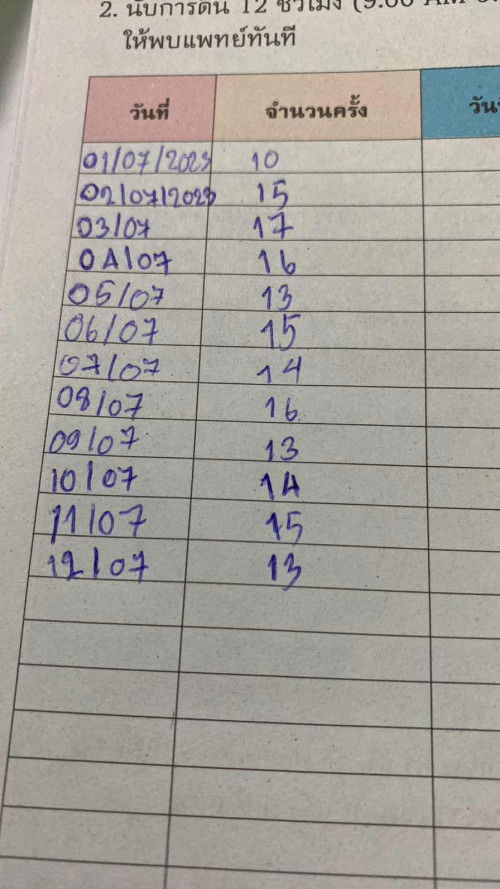 2. นับการดิ้น 12 ชั่วโมง (9.00 AM
ให้พบแพทย์ทันที
วันที่ จำนวนครั้ง วัน
01/07/2023 10
02/07/2023 15
03/07 17
04/07 16
05/07 13
06/07 15
07/07 14
08/07 16
09/07 13
10/07 14
11/07 15
12/07 13